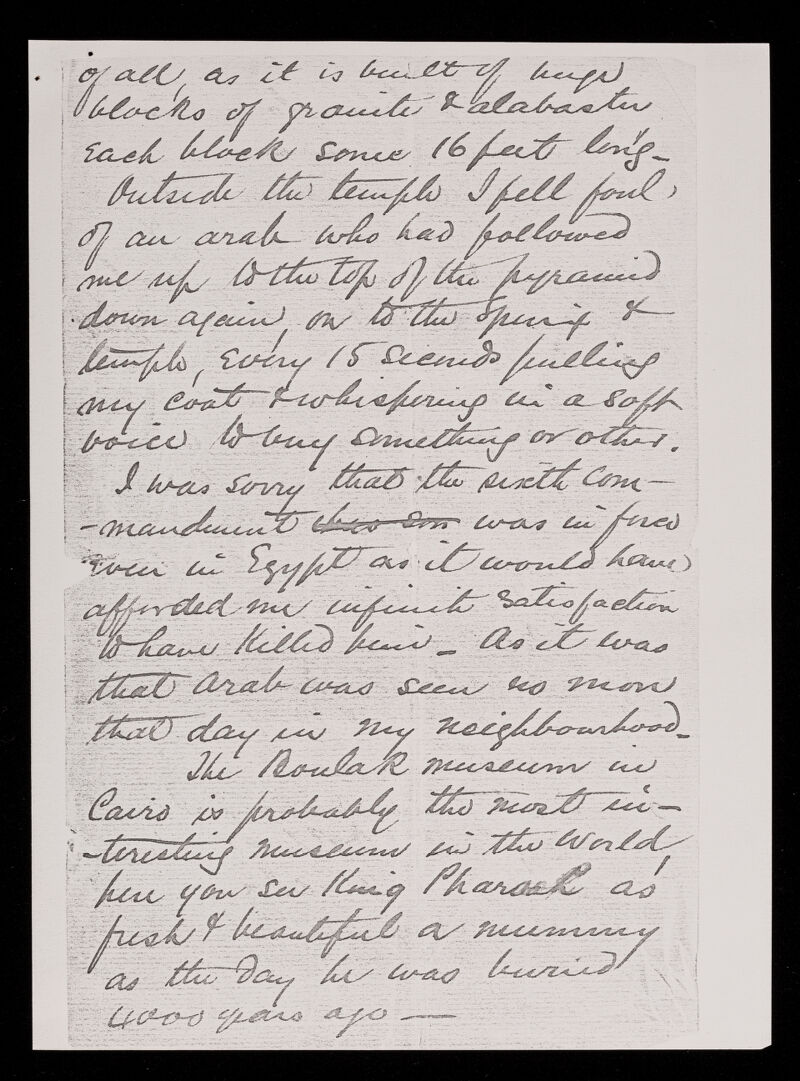 of all, as it is built of huge
blocks of granite & alabaster
Each block some 16 feet long_
Outside the temple I fell foul
of an arab who had followed
me up to the top of the pyramid
down again, on to the spinx &
temple, every 15 seconds pulling
my coat & whispering in a soft
voice to buy something or other.
I was sorry that the sixth Com-
-mandment was in force
even in Egypt as it would have
afforded me infinite satisfaction
to have killed him_ As it was
that arab was seen no more
that day in my neighbourhood_
The Boulak museum in
Cairo is probably the most in-
-teresting museum in the World,
here you see King Pharaoh as
fresh & beautiful a mummy
as the day he was buried
4000 years ago —